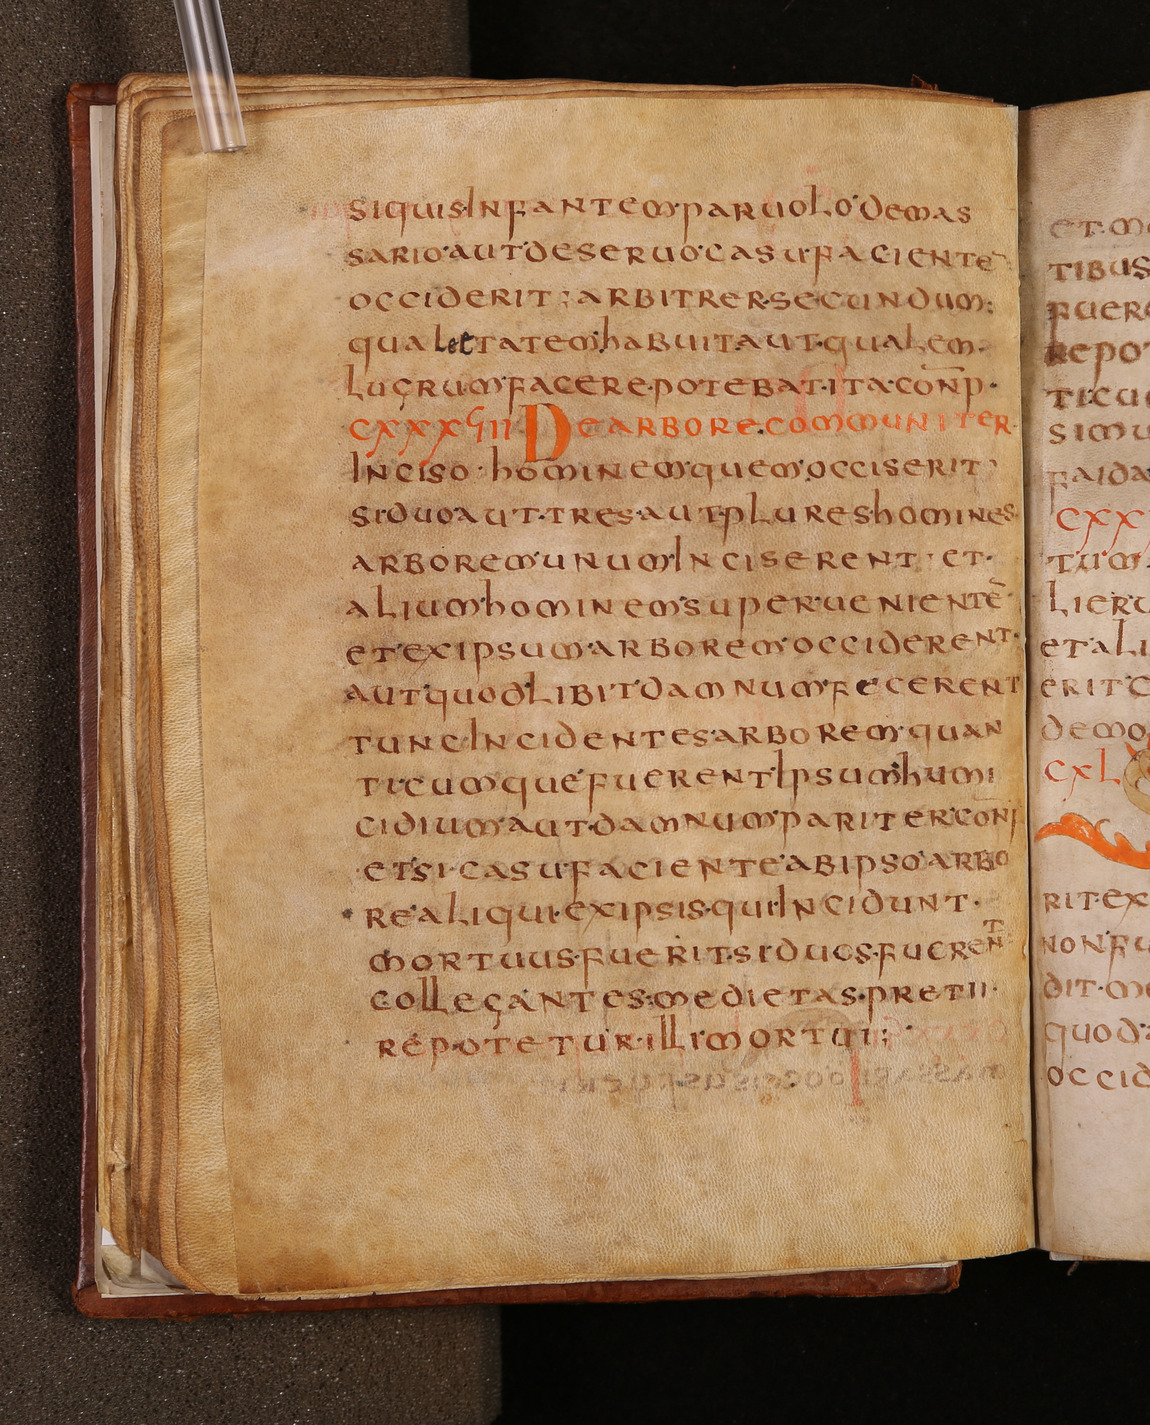 siquis·Infantem·paruolo·demas
sario·aut·deseruo·casufaciente
occiderit; arbitrer·secundum·
qualetetatem·habuit·aut·qualem·
lucrum·facere·potebat·ita·conp·
CXXXVIII De arbore·communiter
Inciso·hominem·quem·occiserit
si·duo·aut·tres·aut·plures·homines
arborem·unum·Inciserent·et·
alium·hominem·superueniente
et·exipsum·arborem·occiderent·
aut·quodlibit·damnum·fecerent
tunc·Incidentes·arborem·quan
ticumque·fuerent·Ipsum·humi
cidium·aut·damnum·pariter·coni
etsi·casufaciente·abipso·arbo
re·aliqui·exipsis·qui·Incidunt·
mortuus·fuerit·si·duos·fuerent
colleçantes·medietas·pretii·
repotetur·illi·mortui;
et·m
tibus
fuer
repot
ticu
simu
faida
CXX
tum
lier
et·ali
erit
demo
CXL
rit·ex
non·fu
dit·me
quod
occid